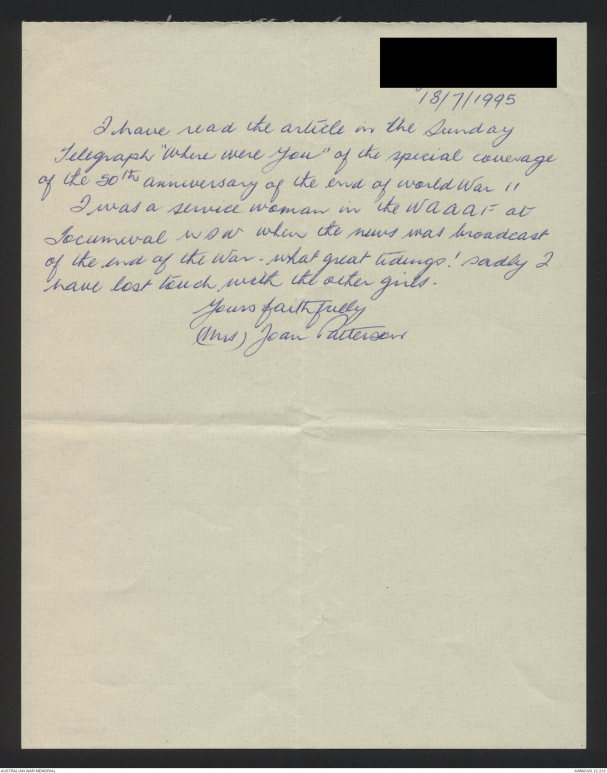 18/7/1995
I have read the article in the Sunday
Telegraph "Where were You" of the special coverage
of the 50th anniversary of the end of world War 11
I was a service woman in the WAAAF at
Tocumwal NSW when the news was broadcast
of the end of the War - what great tidings! sadly I
have lost touch with the other girls.
Yours faithfully
(Mrs) Joan Patterson
AUSTRALIAN WAR MEMORIAL